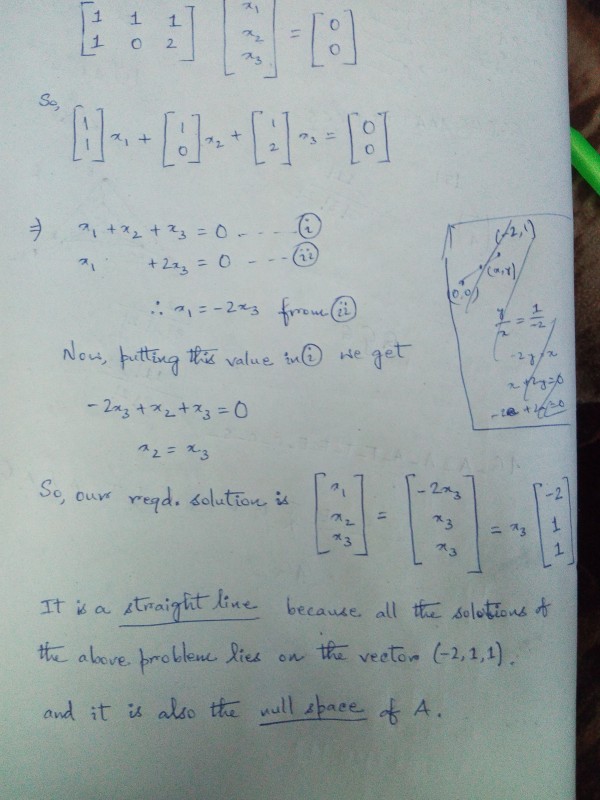 [1 1 1
1 0 2] [x₁
x₂
x₃] = [0
0]
So,
[1
1] x₁ + [1
0] x₂ + [1
2] x₃ = [0
0]
⇒ x₁ + x₂ + x₃ = 0 - - - - (i)
x₁ + 2x₃ = 0 - - - (ii)
∴ x₁ = -2x₃ from (ii)
Now, putting this value in (i) we get
-2x₃ + x₂ + x₃ = 0
x₂ = x₃
So, our reqd. solution is [x₁
x₂
x₃] = [-2x₃
x₃
x₃] = x₃ [-2
1
1]
It is a straight line because all the solutions of
the above problem lies on the vector (-2,1,1).
and it is also the null space of A.
(-2,1)
(x,y)
(0,0)
y/x = 1/-2
-2y = x
x + 2y = 0